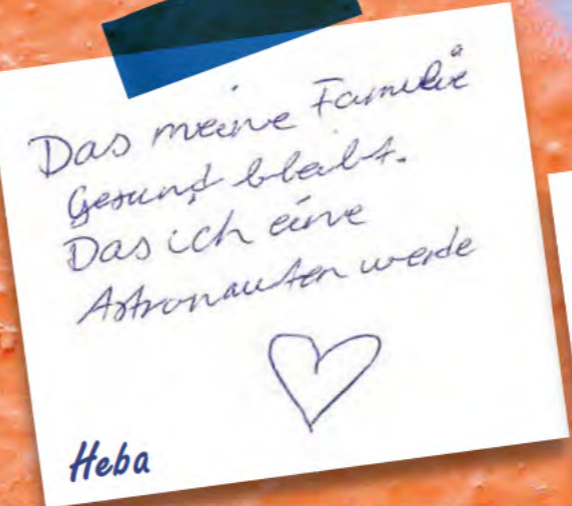 Das meine Familie
Gesund bleibt.
Das ich eine
Astronauten werde
Heba